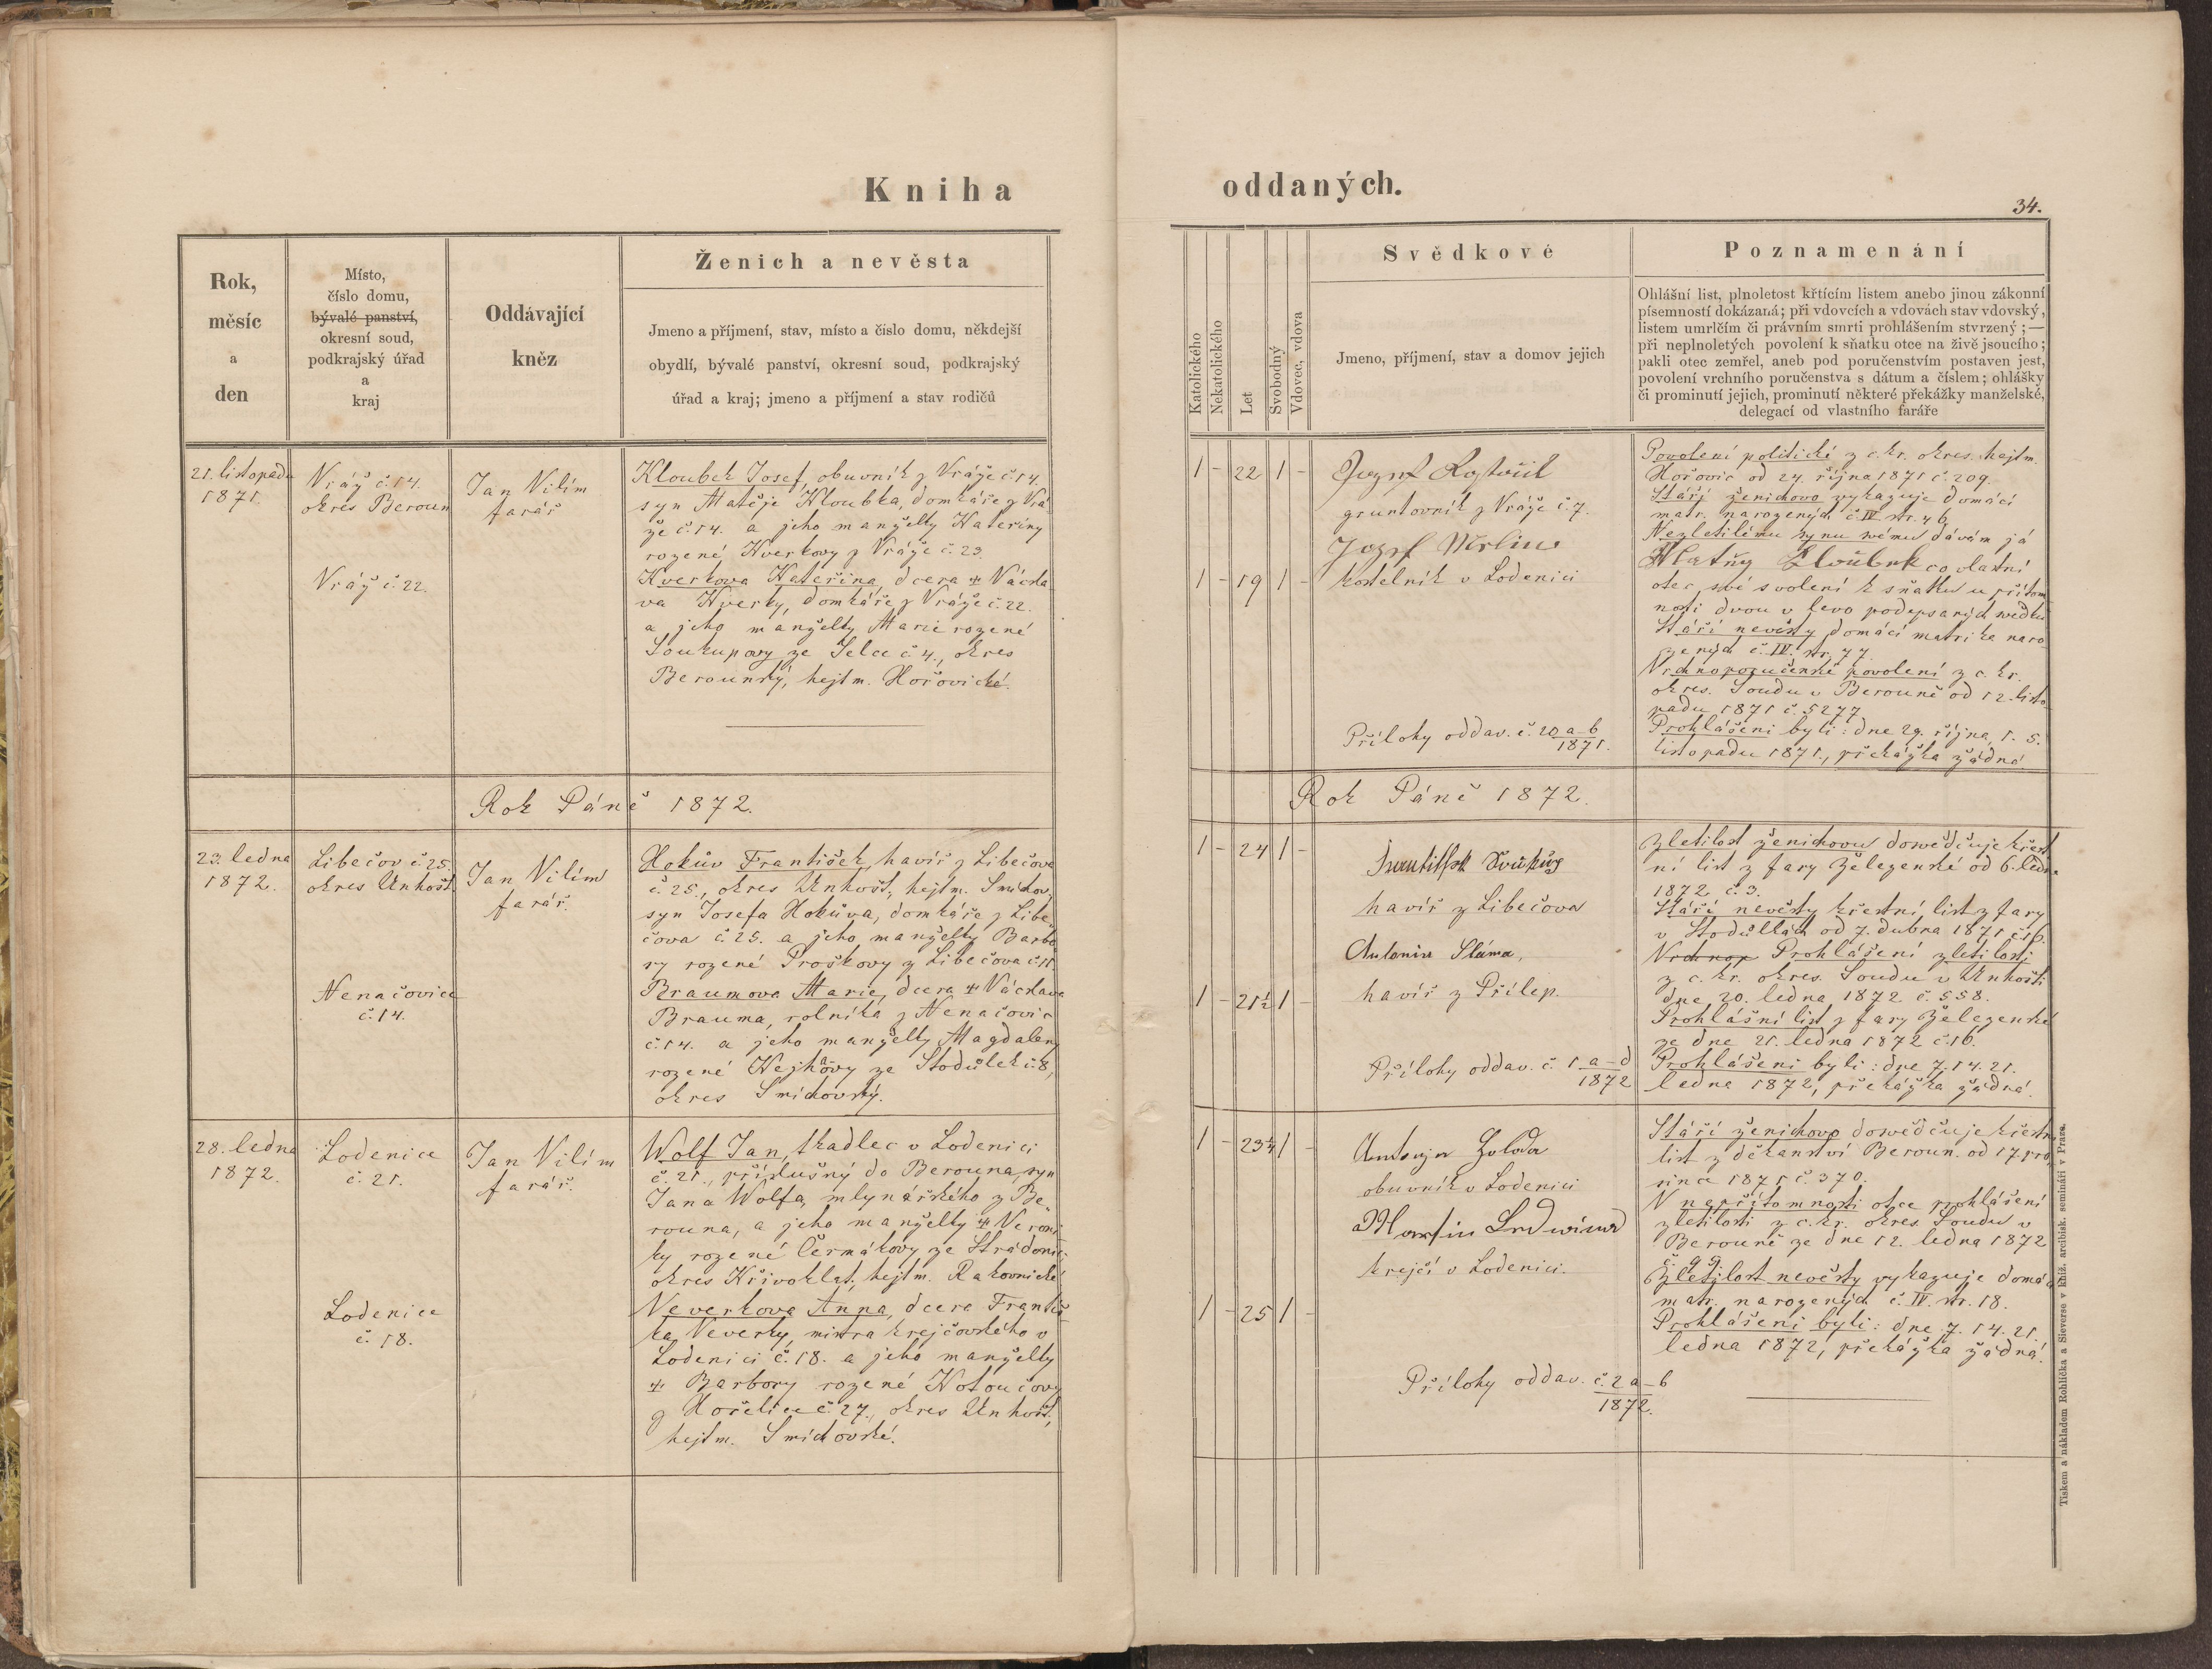 Kniha
oddaných.
34.
Rok,
měsíc
a
den
Místo,
číslo domu,
bývalé panství,
okresní soud,
podkrajský úřad
a
kraj
Oddávající
kněz
Ženich a nevěsta
Jmeno a příjmení, stav, místo a číslo domu, někdejší
obydlí, bývalé panství, okresní soud, podkrajský
úřad a kraj; jmeno a příjmení a stav rodičů
Katolického
Nekatolického
Let
Svobodný
Vdovec, vdova
Svědkové
Jmeno, příjmení, stav a domov jejich
Poznamenání
Ohlášní list, plnoletost křtícím listem anebo jinou zákonní
písemností dokázaná; při vdovcích a vdovách stav vdovský,
listem umrlčím či právním smrti prohlášením stvrzený; —
při neplnoletých povolení k sňatku otce na živě jsoucího;
pakli otec zemřel, aneb pod poručenstvím postaven jest,
povolení vrchního poručenstva s dátum a číslem; ohlášky
či prominutí jejich, prominutí některé překážky manželské,
delegací od vlastního faráře
21. listopadu
1871.
Vráž č. 14.
okres Beroun
Jan Vilím
farář
Kloubek Josef, obuvník z Vráže č. 14.
syn Matěje Kloubka, domkáře z Vrá
že č. 14. a jeho manželky Kateřiny
rozené Kverkovy z Vráže č. 23.
Vráž č. 22.
Kverkova Kateřina, dcera ✠ Václa
va Kverky, domkáře z Vráže č. 22.
a jeho manželky Marie rozené
Soukupovy ze Selce č. 4., okres
Berounský, hejtm. Hořovické.
1 – 22 1 –
gruntovník z Vráže č. 7.
1 – 19 1 –
kostelník v Lodenici
Přílohy oddav. č. 20 a–b
1871.
Povolení politické z c. kr. okres. hejtm.
Hořovic od 24. října 1871 č. 209.
Stáří ženichovo vykazuje domácí
matr. narozených č. IV. str. 46.
Nezletilému synu svému dávám já
co vlastní
otec své svolení k sňatku u přítom
nosti dvou v levo podepsaných svědků
Stáří nevěsty domácí matrika naro
zených č. IV. str. 77.
Vrchnoporučenské povolení z c. kr.
okres. Soudu v Berouně od 12. listo
padu 1871 č. 5277
Prohlášeni byli: dne 29. října, 1. 5.
listopadu 1871., překážka žádná.
Rok Páně 1872.
Rok Páně 1872.
23. ledna
1872.
Libečov č. 25
okres Unhošt
Jan Vilím
farář.
Hokův František, havíř z Libečova
č. 25., okres Unhošt, hejtm. Smíchov,
syn Josefa Hokůva, domkáře z Libe
čova č. 25. a jeho manželky Barbo
ry rozené Proškovy z Libečova č. 11.
Nenačovice
č. 14.
Braumova Marie, dcera ✠ Václava
Brauma, rolníka z Nenačovic
č. 14. a jeho manželky Magdaleny
rozené Hejkovy ze Stodůlek č. 8,
okres Smíchovský.
1 – 24 1 –
havíř z Libečova
Antonin Sláma,
1 – 21½ 1 –
havíř z Přílep.
Přílohy oddav. č. 1 a–d
1872
Zletilost ženichovu dosvědčuje křest
ní list z fary Železenské od 6. ledna
1872 č. 3.
Stáří nevěsty křestní list z fary
v Stodůlkách od 7. dubna 1871 č. 16.
Vrchnop Prohlášení zletilosti
z c. kr. okres. Soudu v Unhošti
dne 20. ledna 1872. č. 558.
Prohlášní list z fary Železenské
ze dne 21. ledna 1872 č. 16.
Prohlášeni byli: dne 7. 14. 21.
ledna 1872, překážka žádná.
28. ledna
1872.
Lodenice
č. 21.
Jan Vilím
farář.
Wolf Jan, tkadlec v Lodenici
č. 21., příslušný do Berouna, syn
Jana Wolfa, mlynářského z Be
rouna, a jeho manželky ✠ Veroni
ky rozené Čermákovy ze Stradonic
okres Křivoklat, hejtm. Rakovnické
Lodenice
č. 18.
Neverkova Anna, dcera Františ
ka Neverky, mistra krejčovského v
Lodenici č. 18. a jeho manželky
✠ Barbory rozené Kotoučovy
z Hořelice č. 27., okres Unhošt,
hejtm. Smíchovské.
1 – 23¼ 1 –
obuvník v Lodenici
krejčí v Lodenici.
1 – 25 1 –
Přílohy oddav. č. 2 a–b
1872.
Stáří ženichovo dosvědčuje křestní
list z děkanství Beroun. od 17. pro
since 1871 č. 370.
V nepřítomnosti otce prohlášení
zletilosti z c. kr. okres Soudu v
Berouně ze dne 12. ledna 1872
č. 99.
Zletilost nevěsty vykazuje domácí
matr. narozených č. IV. str. 18.
Prohlášeni byli: dne 7. 14. 21.
ledna 1872, překážka žádná.
Tiskem a nákladem Rohlíčka a Sieverse v kníž. arcibisk. semináři v Praze.